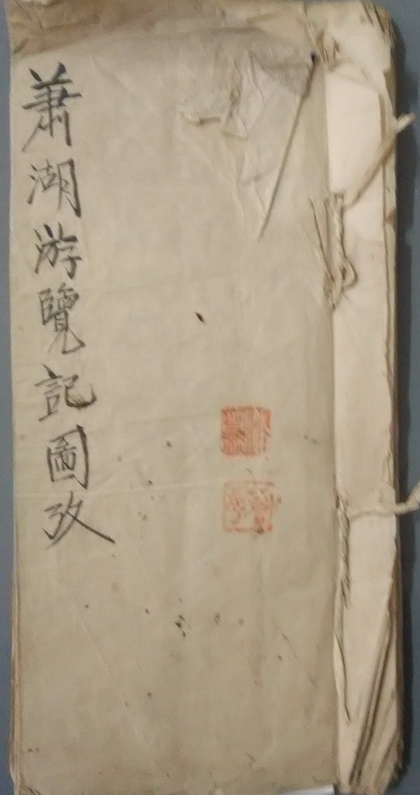 蕭湖游覽記圖攷